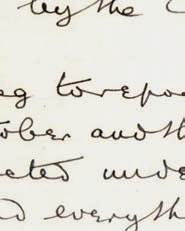 by the C
eg to repo
tober and th
eted unde
d everyth